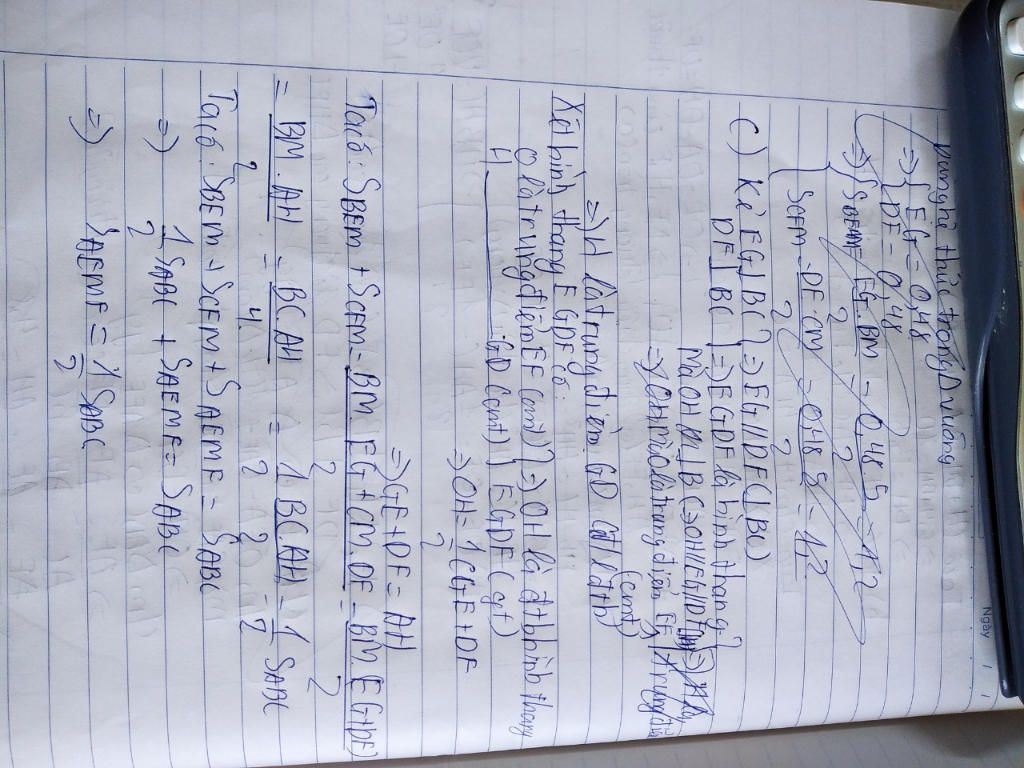 Ngày
... nghi thức trong D vuông
=> { EG = 0,48
DF = 0,48
=> { SBEM = EG.BM / 2 = 0,48.5 / 2 = 1,2
SCFM = DF.CM / 2 = 0,48.5 / 2 = 1,2
c) Kẻ EG ⊥ BC } => EG // DF (⊥ BC)
DF ⊥ BC } => EGDF là hình thang
Mà OH ⊥ BC => OH // EG // DF
=> O là trung điểm EF (cmt)
=> H là trung điểm GD
Xét hình thang EGDF có:
O là trung điểm EF (cmt) } => OH là đtb hình thang
H ____ GD (cmt) } EGDF (gt)
=> OH = 1/2 (GE + DF
=> GE + DF = AH
Ta có: SBEM + SCFM = BM.EG + CM.DF / 2 = BM(EG+DF) / 2
= BM.AH / 2 = BC.AH / 4 = 1/2 . BC.AH / 2 = 1/2 SABC
Ta có: SBEM + SCFM + SAEMF = SABC
=> 1/2 SABC + SAEMF = SABC
=> SAEMF = 1/2 SABC